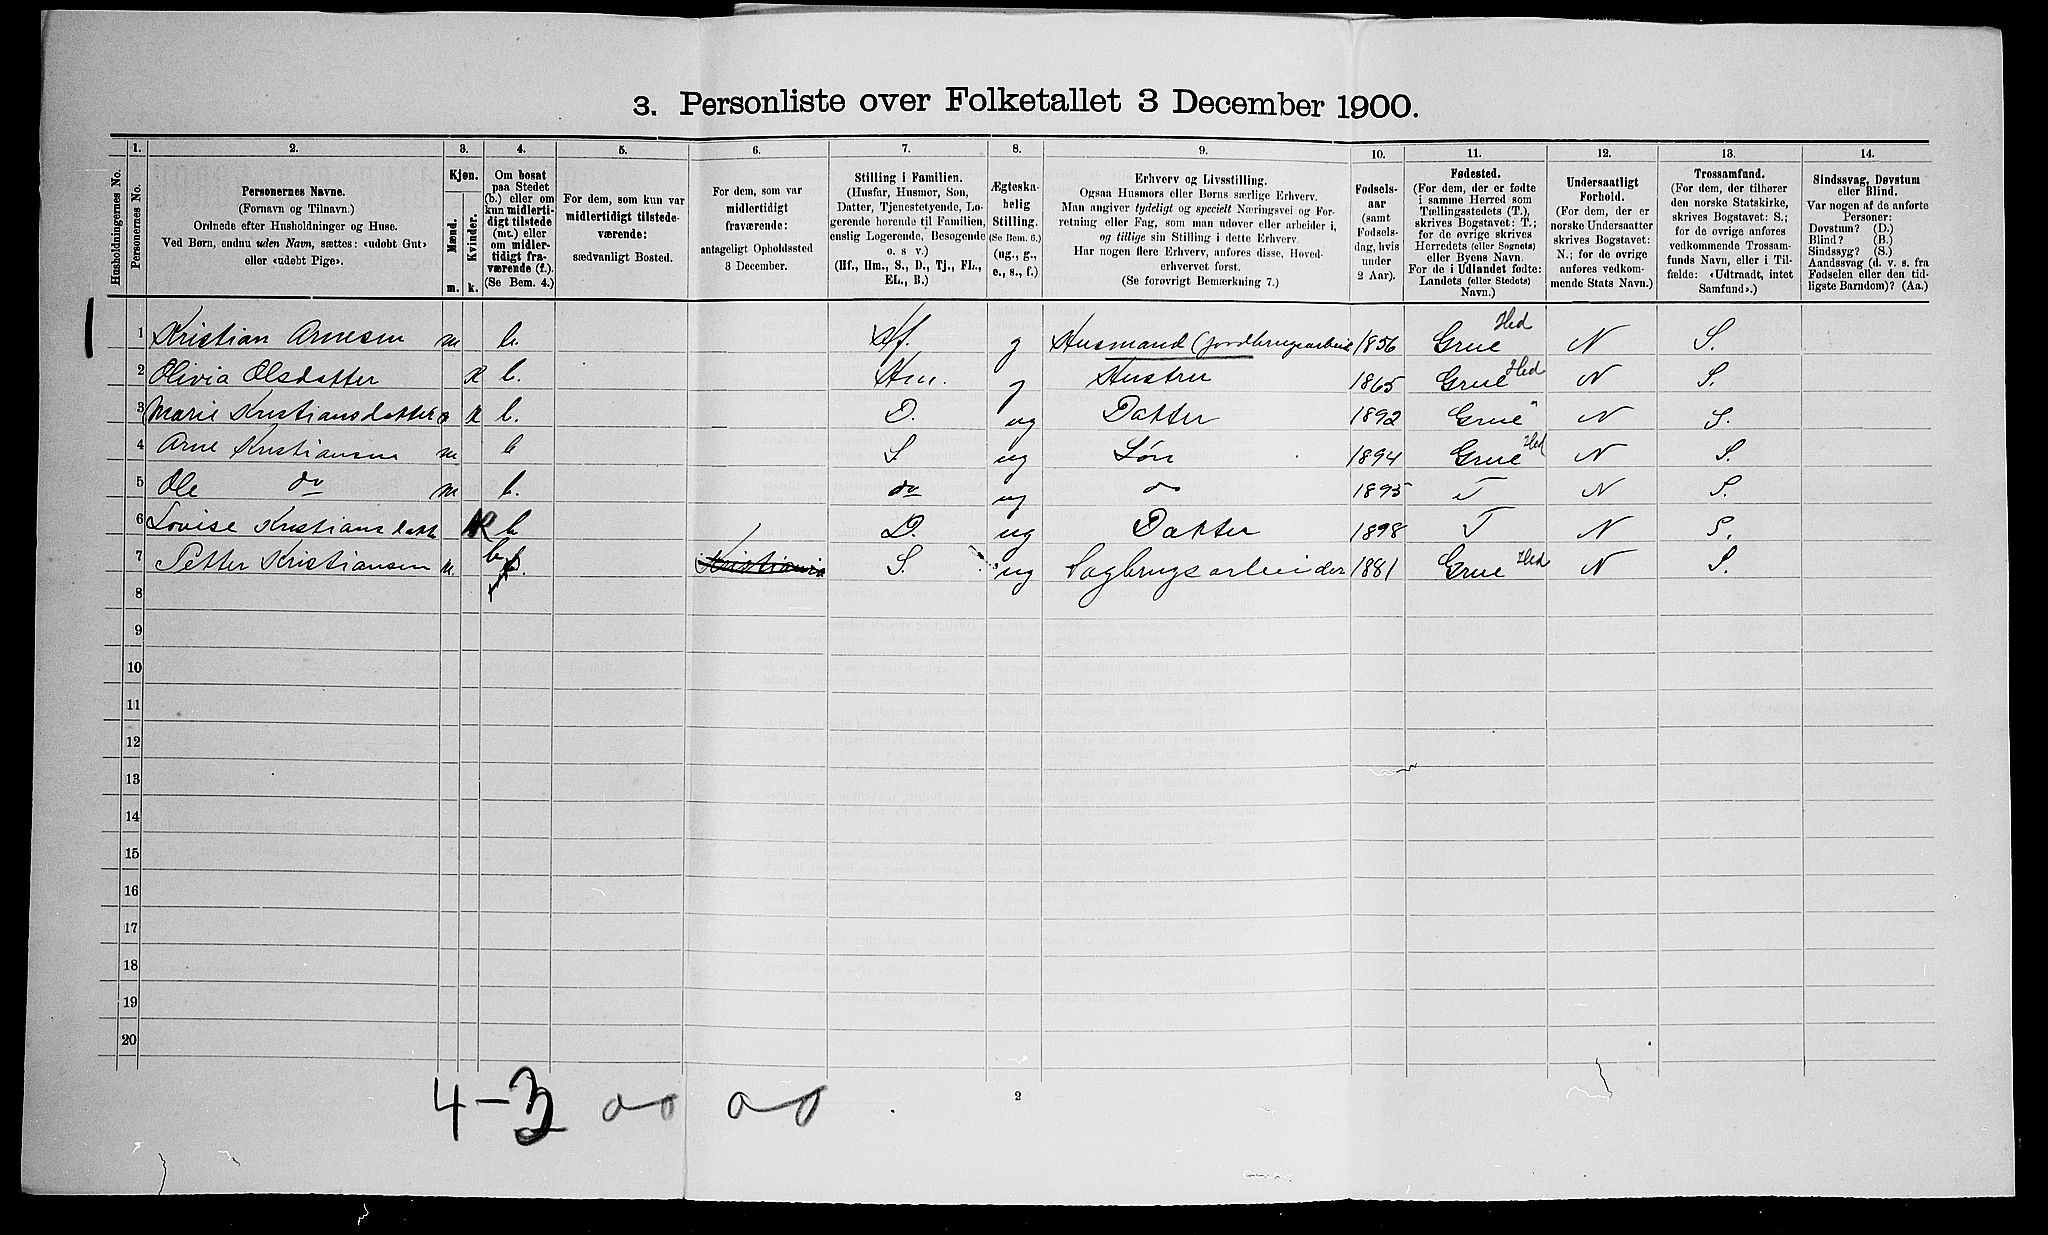 3. Personliste over Folketallet 3 December 1900.
Husholdningernes No.
1.
Personernes No.
2.
Personernes Navne.
(Fornavn og Tilnavn.)
Ordnede efter Husholdninger og Huse.
Ved Børn, endnu uden Navn, sættes: «udøbt Gut»
eller «udøbt Pige».
3.
Kjøn.
Mænd.
Kvinder.
m.
k.
4.
Om bosat
paa Stedet
(b.) eller om
kun midlerti-
digt tilstede
(mt.) eller
om midler-
tidigt fra-
værende (f.).
(Se Bem. 4.)
5.
For dem, som kun var
midlertidigt tilstede-
værende:
sædvanligt Bosted.
6.
For dem, som var
midlertidigt
fraværende:
antageligt Opholdssted
3 December.
7.
Stilling i Familien.
(Husfar, Husmor, Søn,
Datter, Tjenestetyende, Lo-
gerende hørende til Familien,
enslig Logerende, Besøgende
o. s v.)
(Hf., Hm., S., D., Tj., FL.,
EL., B.)
8.
Ægteska-
belig
Stilling.
(Se Bem. 6.)
(ug., g.,
e., s., f.)
9.
Erhverv og Livsstilling.
Ogsaa Husmors eller Børns særlige Erhverv.
Man angiver tydeligt og specielt Næringsvei og For-
retning eller Fag, som man udøver eller arbeider i,
og tillige sin Stilling i dette Erhverv.
Har nogen flere Erhverv, anføres disse, Hoved-
erhvervet først.
(Se forøvrigt Bemærkning 7.)
10.
Fødsels-
aar
(samt
Fødsels-
dag, hvis
under
2 Aar).
11.
Fødested.
(For dem, der er fødte
i samme Herred som
Tællingsstedets (T.),
skrives Bogstavet: T.;
for de øvrige skrives
Herredets (eller Sognets)
eller Byens Navn.
For de i Udlandet fødte:
Landets (eller Stedets)
Navn.)
12.
Undersaatligt
Forhold.
(For dem, der er
norske Undersaatter
skrives Bogstavet:
N.; for de øvrige
anføres vedkom-
mende Stats Navn.)
13.
Trossamfund.
(For dem, der tilhører
den norske Statskirke,
skrives Bogstavet: S.;
for de øvrige anføres
vedkommende Trossam-
funds Navn, eller i Til-
fælde: «Udtraadt, intet
Samfund».)
14.
Sindssvag, Døvstum
eller Blind.
Var nogen af de anførte
Personer:
Døvstum? (D.)
Blind? (B.)
Sindssyg? (S.)
Aandssvag (d. v. s. fra
Fødselen eller den tid-
ligste Barndom)? (Aa.)
1 Kristian Arnesen m b. Hf. g Husmand (jordbrugsarbeid 1856 Grue Hed N S.
2 Olivia Olsdatter K b. Hm. g Hustru 1865 Grue Hed N S.
3 Marie Kristiansdatter K b. D. ug Datter 1892 Grue " N S.
4 Arne Kristiansen m b S ug Søn 1894 Grue Hed N S.
5 Ole do m b. do ug do 1895 T N S.
6 Lovise Kristiansdatt K b D. ug Datter 1898 T N S.
7 Petter Kristiansen m. b Kristiania S. ug Sagbrugsarbeider 1881 Grue Hed N S.
8
9
10
11
12
13
14
15
16
17
18
19
20
4-3 00 00
2